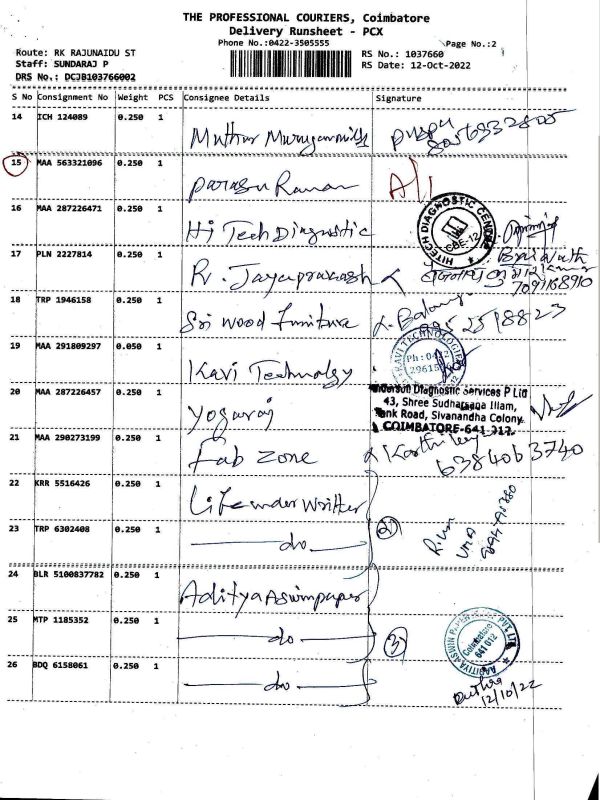 THE PROFESSIONAL COURIERS, Coimbatore
Delivery Runsheet - PCX
Phone No.:0422-3505555
Page No.:2
Route: RK RAJUNAIDU ST
RS No.: 1037660
Staff: SUNDARAJ P
RS Date: 12-Oct-2022
DRS No.: DCJB103766002
S No Consignment No Weight PCS Consignee Details Signature
14 ICH 124089 0.250 1
15 MAA 563321096 0.250 1 Parasu Raman
16 MAA 287226471 0.250 1 Hi Tech Diagnostic
HITECH DIAGNOSTIC CENTRE CBE-12
17 PLN 2227814 0.250 1 R. Jayaprakash
7091168910
18 TRP 1946158 0.250 1 Sri Wood Furniture
19 MAA 291809297 0.050 1 Kavi Technology
KAVI TECHNOLOGIES
20 MAA 287226457 0.250 1 Yogaraj
Diagnostic Services P Ltd
43, Shree Sudharsana Illam,
Tank Road, Sivanandha Colony
COIMBATORE-641 012.
21 MAA 290273199 0.250 1 Fab Zone
6384063740
22 KRR 5516426 0.250 1
23 TRP 6302408 0.250 1 do 2)
24 BLR 5100837782 0.250 1 Aditya Aswin paper
25 MTP 1185352 0.250 1 do 3)
Coimbatore 641 012
26 BDQ 6158061 0.250 1 do
12/10/22